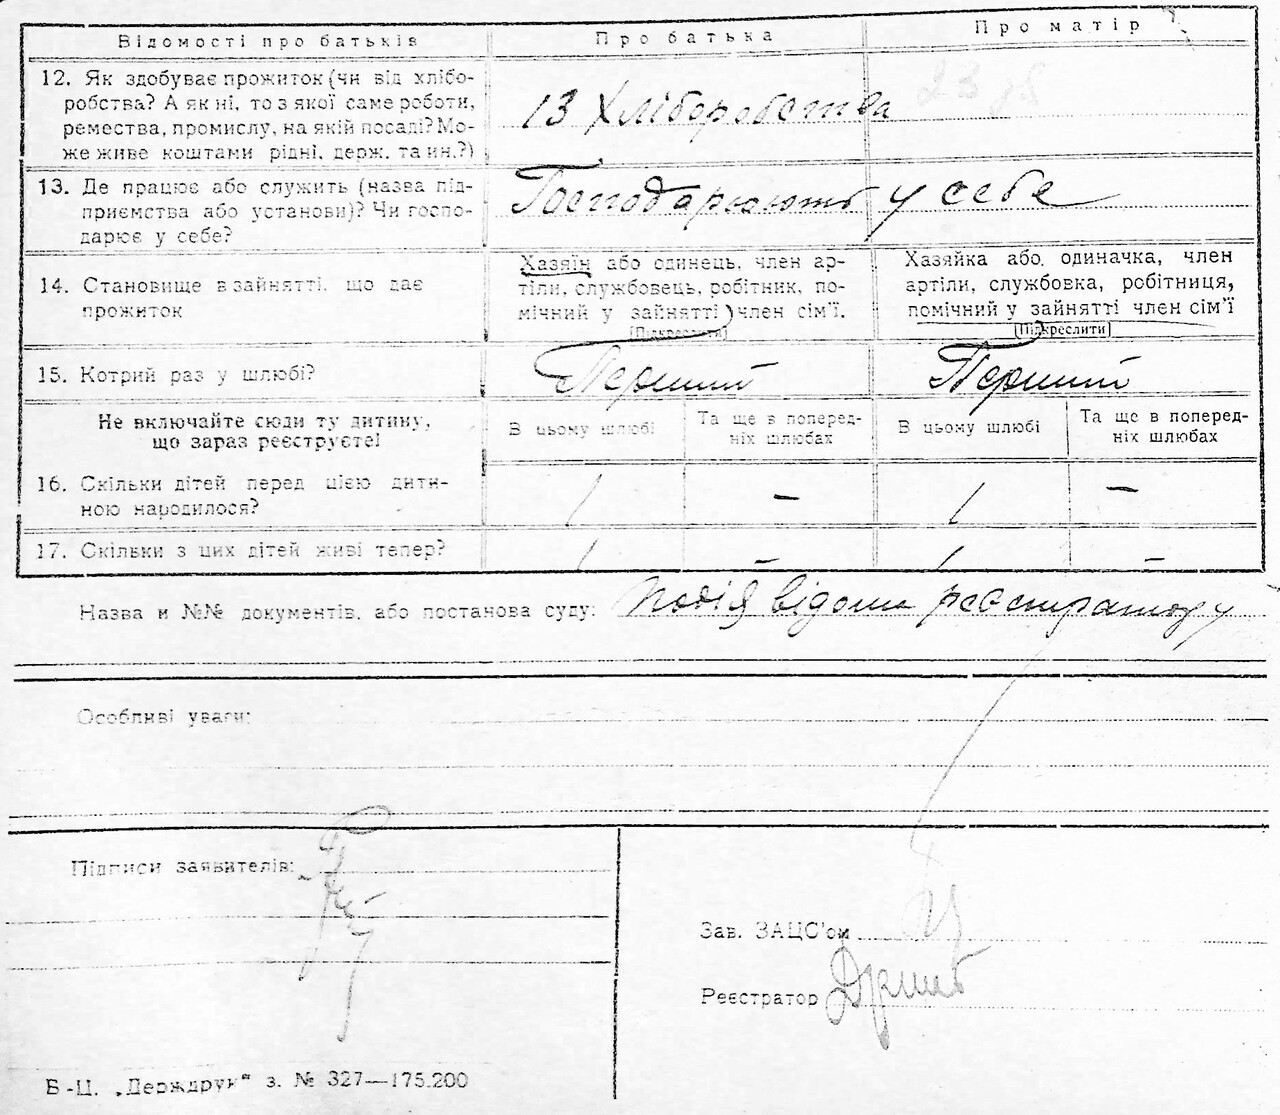 Відомості про батьків
Про батька
Про матір
12. Як здобуває прожиток (чи від хлібо-
робства? А як ні, то з якої саме роботи,
ремества, промислу, на якій посаді? Мо-
же живе коштами рідні, держ. та ин.?)
13 Хліборобства
13. Де працює або служить (назва під-
приємства або установи)? Чи госпо-
дарює у себе?
Господарюють у себе
14. Становище в зайнятті, що дає
прожиток
Хазяїн або одинець, член ар-
тіли, службовець, робітник, по-
мічний у зайнятті член сім'ї.
(Підкреслити)
Хазяйка або одиначка, член
артіли, службовка, робітниця,
помічний у зайнятті член сім'ї
(Підкреслити)
15. Котрий раз у шлюбі?
Перший
Перший
Не включайте сюди ту дитину,
що зараз реєструєте!
В цьому шлюбі
Та ще в поперед-
ніх шлюбах
В цьому шлюбі
Та ще в поперед-
ніх шлюбах
16. Скільки дітей перед цією дити-
ною народилося?
1 – 1 –
17. Скільки з цих дітей живі тепер?
1 – 1 –
Назва и №№ документів, або постанова суду: Подія відома реєстратору
Особливі уваги:
Підписи заявителів:
Зав. ЗАЦС'ом
Реєстратор
Б-Ц. „Держдрук“ з. № 327—175.200